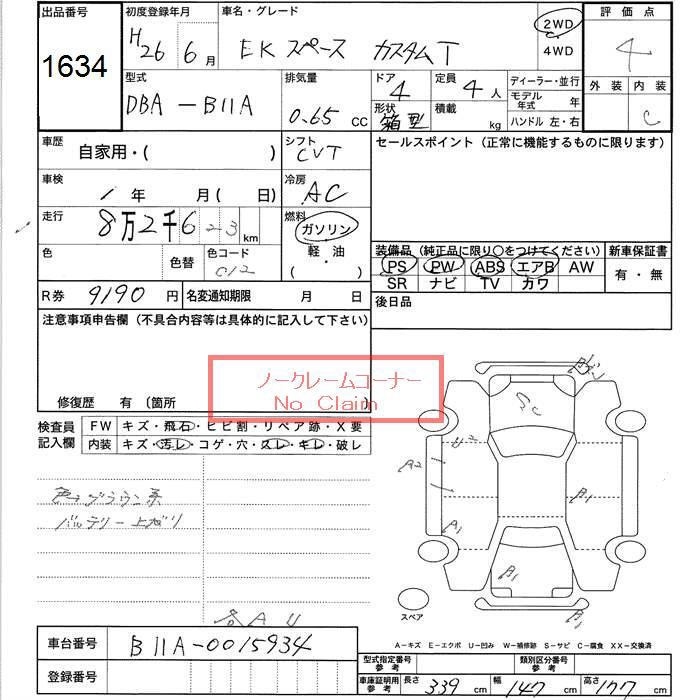 出品番号 初度登録年月 車名・グレード 評価点
1634 H26 6月 EKスペース カスタムT 2WD 4WD 4
型式 排気量 ドア 定員 ディーラー・並行 外装 内装
DBA-B11A 0.65 CC 4 4人 モデル年式 年 C
形状 箱型 積載 kg ハンドル 左・右
車歴 自家用・( ) シフト CVT セールスポイント(正常に機能するものに限ります)
車検 年 月( 日) 冷房 AC
走行 8万2千6 2 3 km 燃料 ガソリン
色 色替 色コード 軽・油 ( )
装備品(純正品に限り○をつけてください) 新車保証書
PS PW ABS エアB AW 有・無
SR ナビ TV カワ
R券 9190円 名変通知期限 月 日 後日品
注意事項申告欄(不具合内容等は具体的に記入して下さい)
ノークレームコーナー
No Claim
修復歴 有(箇所
検査員記入欄 FW キズ・飛石・ヒビ割・リペア跡・X要
内装 キズ・汚レ・コゲ・穴・スレ・キレ・破レ
U2
A2
A1
A1
A1
A1
バッテリー上がり
スペア
A-キズ E-エクボ U-凹み W-補修跡 S-サビ C-腐食 XX-交換済
車台番号 B11A-0015934
登録番号
型式指定番号参考 類別区分番号参考
車庫証明用参考 長さ 339 cm 幅 147 cm 高さ 177 cm